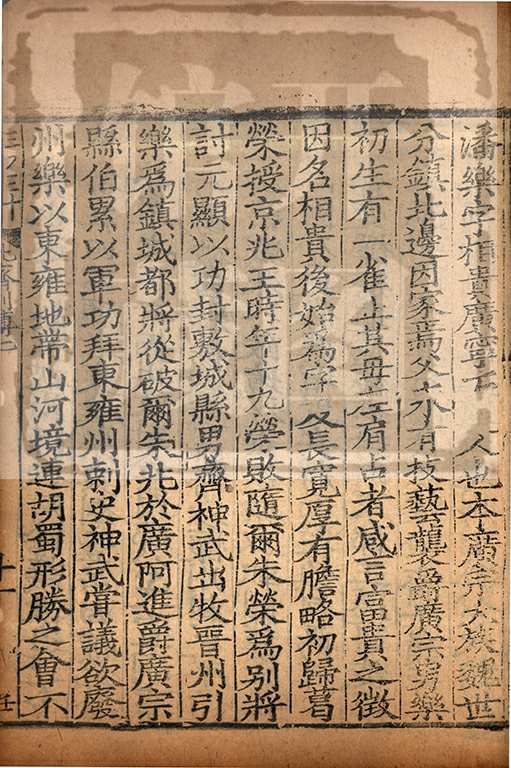 潘樂字相貴廣寧石 人也本廣宗大族魏世
分鎮北邊因家焉父永有技藝襲爵廣宗男樂
初生有一雀止其母左肩占者咸言富貴之徵
因名相貴後始為字及長寬厚有膽略初歸葛
榮授京兆王時年十九榮敗隨爾朱榮為別將
討元顥以功封敷城縣男齊神武出牧晉州引
樂為鎮城都將從破爾朱兆於廣阿進爵廣宗
縣伯累以軍功拜東雍州刺史神武嘗議欲廢
州樂以東雍地帶山河境連胡蜀形勝之會不